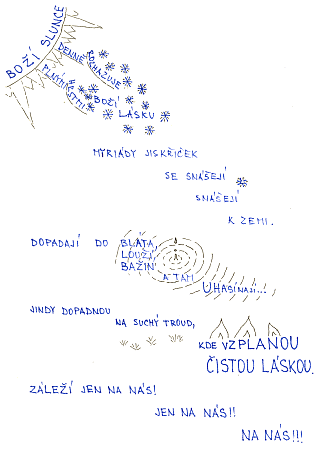 BOŽÍ SLUNCE
DENNĚ ROZHAZUJE
PLNÝMI HRSTMI
BOŽÍ
LÁSKU
MYRIÁDY JISKŘIČEK
SE SNÁŠEJÍ
SNÁŠEJÍ
K ZEMI.
DOPADAJÍ DO BLÁTA,
LOUŽÍ,
BAŽIN
A TAM
UHASÍNAJÍ...!
JINDY DOPADNOU
NA SUCHÝ TROUD,
KDE VZPLANOU
ČISTOU LÁSKOU.
ZÁLEŽÍ JEN NA NÁS!
JEN NA NÁS!!
NA NÁS!!!